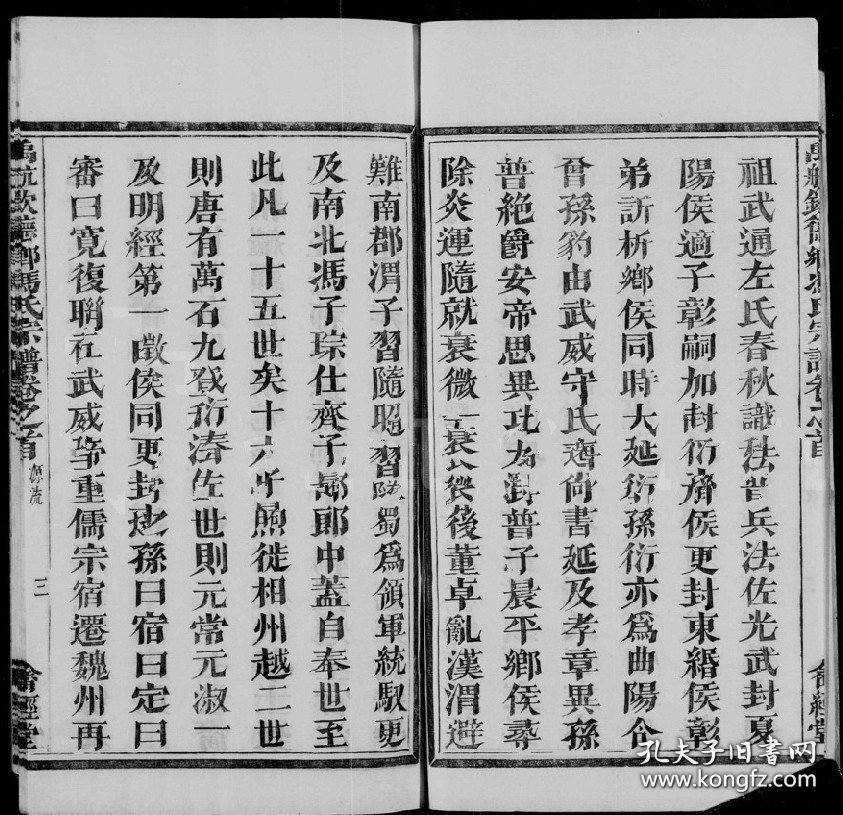 祖武通左氏春秋識法普兵法佐光武封夏
陽侯適子彰嗣加封衍齊侯更封東緡侯彰
弟訢析鄉侯同時大延衍孫衍亦爲曲陽令
曾孫豹由武威守氏躋尚書延及孝章異孫
普絶爵安帝思異功為對普子晨平鄉侯尋
除炎運隨就衰微衰後董卓亂漢渭避
難南郡渭子習隨昭習隨蜀爲領軍統馭更
及南北馮子琮仕齊子郎中蓋自奉世至
此凡一十五世矣十六子熙徙相州越二世
則唐有萬石九登衍濤佐世則元常元淑一
及明經第一徵侯同更封孫曰宿曰定曰
審曰寬復聯在武威帝重儒宗宿遷魏州再
禹航欽德鄉馮氏宗譜卷之首
源流
三
會經堂
孔夫子旧书网
www.kongfz.com